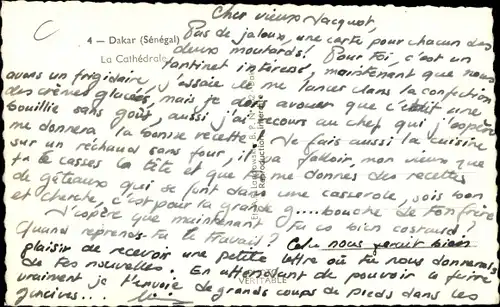 Cher vieux Jacquot,
Pas de jaloux, une carte pour chacun des
4 — Dakar (Sénégal)
deux moutards! Pour toi, c'est un
La Cathédrale
tantinet intéressé, maintenant que nous
avons un frigidaire, j'essaie de me lancer dans la confection
des crèmes glacées, mais je dois avouer que c'était une
bouillie sans goût, aussi j'ai recours au chef qui j'espère
me donnera la bonne recette. Je fais aussi la cuisine
sur un réchaud sans four, il va falloir, mon vieux que
tu te casses la tête et que tu me donnes des recettes
de gâteaux qui se font dans une casserole, sois bon
et cherche, c'est pour la grande g....bouche de ton frère
J'espère que maintenant tu as bien
Quand reprends-tu le travail? Cela nous ferait bien
plaisir de recevoir une petite lettre où tu nous donnerais
de tes nouvelles. En attendant de pouvoir le faire
VÉRITABLE
vraiment je t'envoie de grands coups de pieds dans les
gencives...